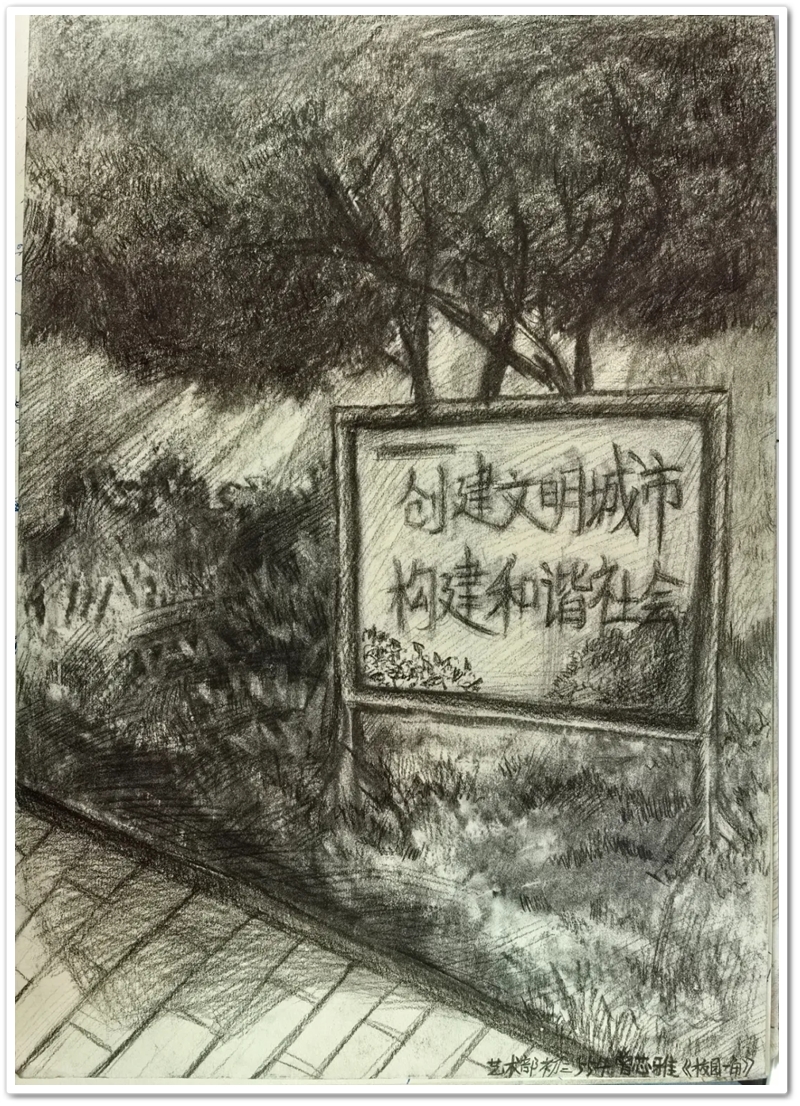 创建文明城市
构建和谐社会
艺术部初二 芯雅《校园一角》